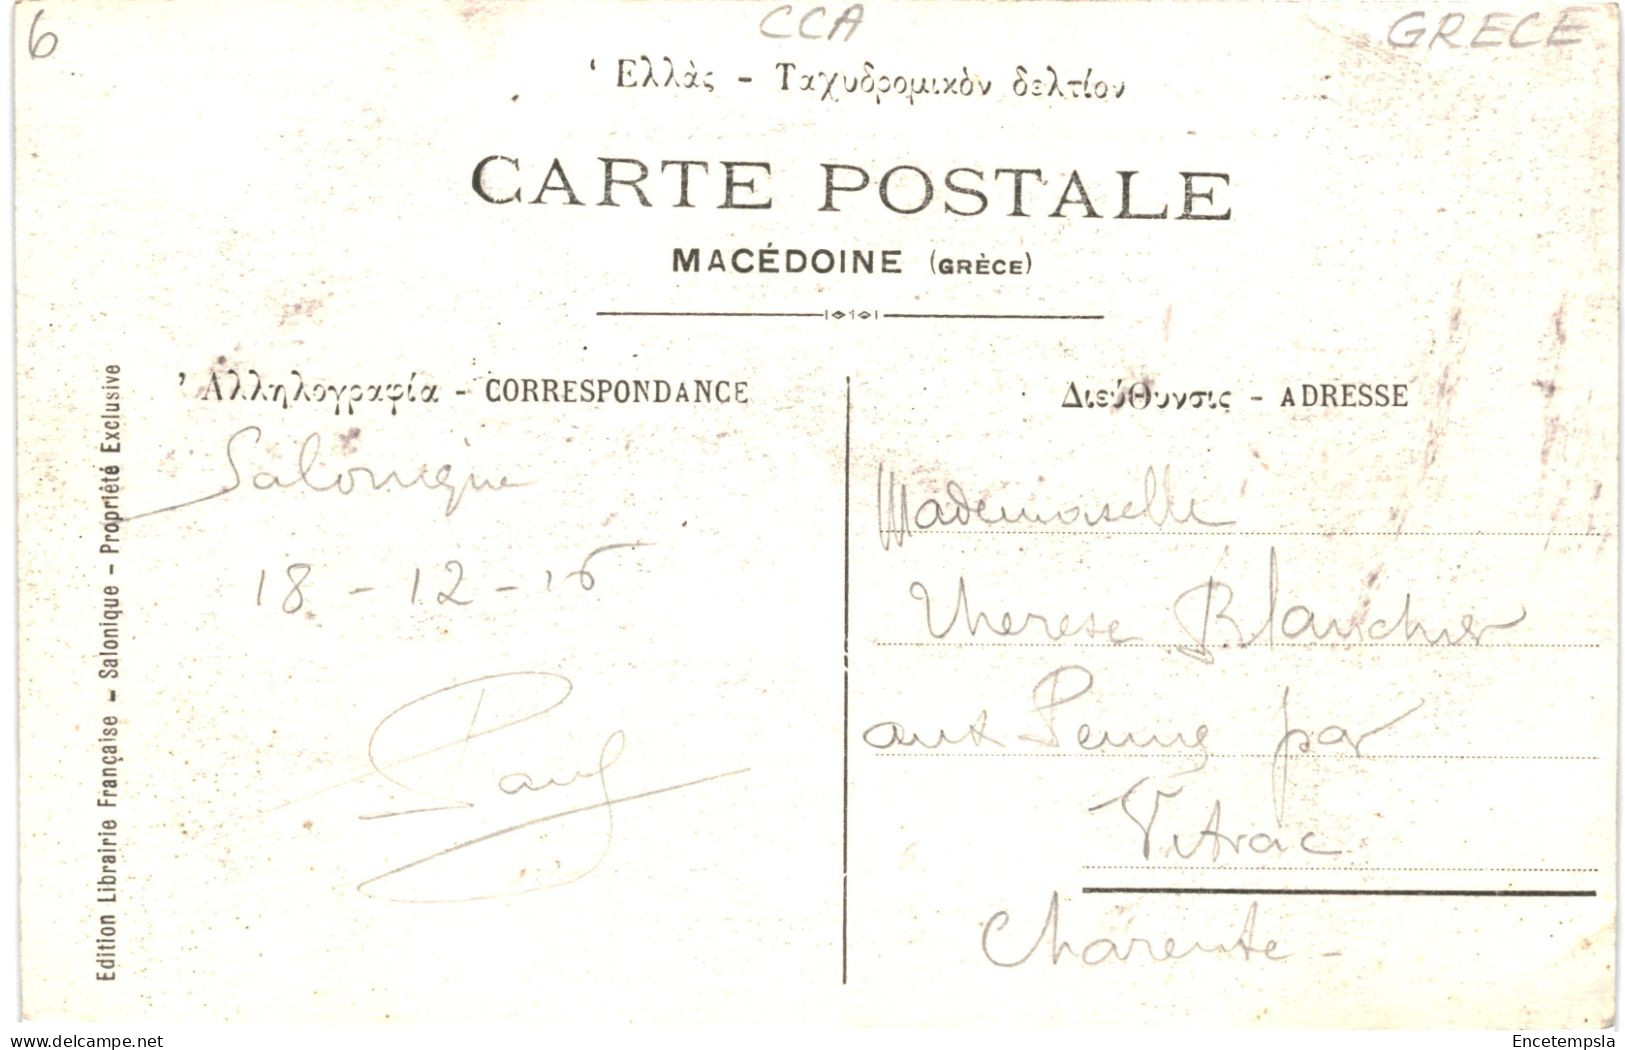 6
CCA
GRECE
‘Ελλὰς - Ταχυδρομικὸν δελτίον
CARTE POSTALE
MACÉDOINE (GRÈCE)
’Αλληλογραφία - CORRESPONDANCE
Διεύθυνσις - ADRESSE
Edition Librairie Française - Salonique - Propriété Exclusive
Salonique
18 - 12 - 16
Paul
Mademoiselle
Therese Blanchier
aux par
Vitrac
Charente -
delcampe.net
Encetempsla